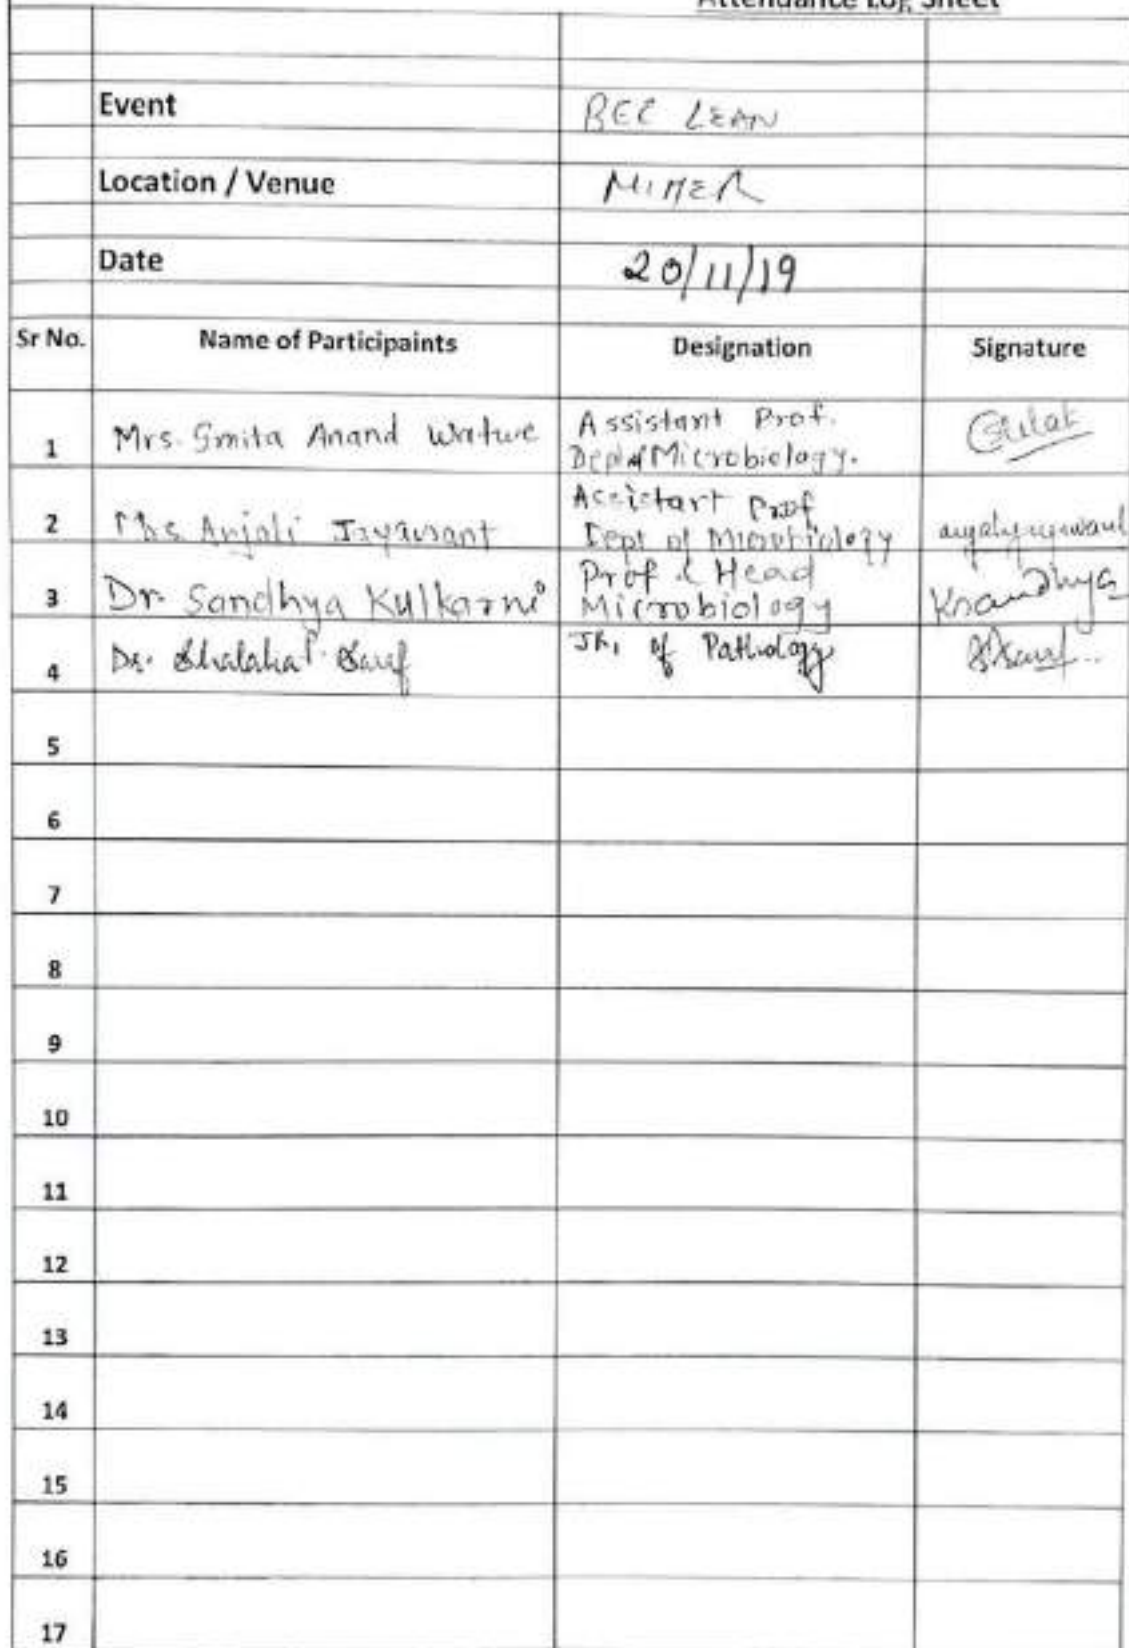 Attendance Log Sheet
Event BEC LEAN
Location / Venue MIMER
Date 20/11/19
Sr No. Name of Participaints Designation Signature
1 Mrs. Smita Anand Watwe Assistant Prof.
Dept of Microbiology.
2 Mrs Anjali Jayawant Assistant Prof
Dept of Microbiology
3 Dr. Sandhya Kulkarni Prof & Head
Microbiology
4 Dr. Sarf of Pathology
5
6
7
8
9
10
11
12
13
14
15
16
17